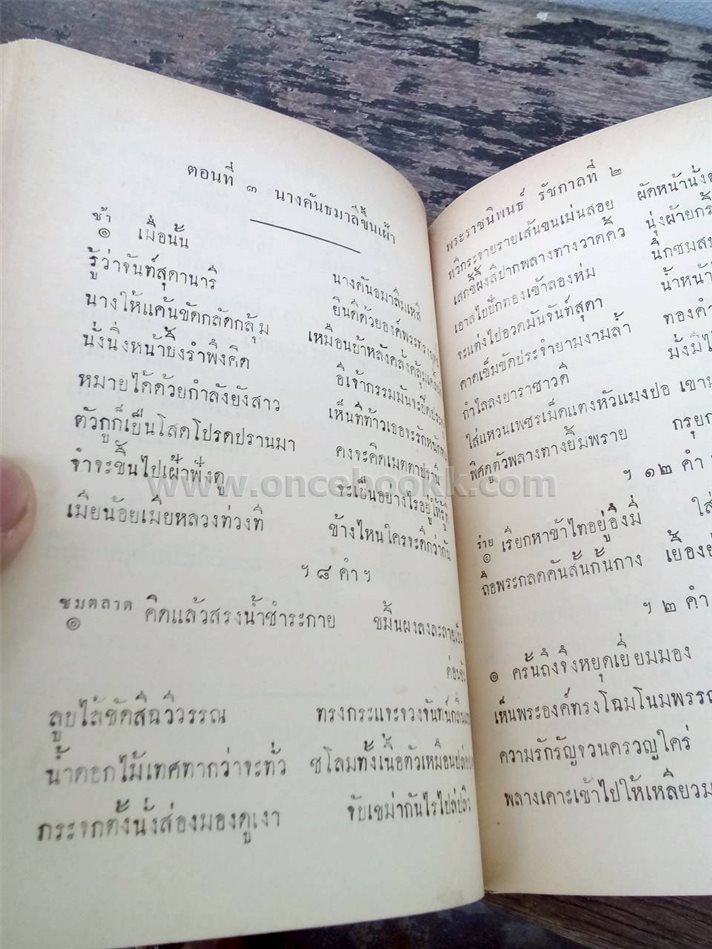 ตอนที่ ๓ นางคันธมาลีขึ้นเฝ้า
ช้า
๏ เมื่อนั้น นางคันธมาลีมเหสี
รู้ว่าจันท์สุดานารี ยินดีด้วยองค์พระทรง
นางให้แค้นขัดกลัดกลุ้ม เหมือนบ้าหลังคลั่งคลุ้ม
นั่งนิ่งหน้าบึ้งรำพึงคิด อีเจ้ากรรมมัน
หมายได้ด้วยกำลังยังสาว เห็นทีท้าวเธอจะรัก
ตัวกูก็เป็นโสดโปรดปรานมา คงจะคิดเมตตา
จำจะขึ้นไปเฝ้าฟังดู จะเป็นอย่างไรอยู่ให้รู้
เมียน้อยเมียหลวงท่วงที ข้างไหนใครจะดีกว่ากัน
ฯ ๘ คำ ฯ
ชมตลาด
๏ คิดแล้วสรงน้ำชำระกาย ขมิ้นผงลงละลาย
ลูบไล้ขัดสีฉวีวรรณ ทรงกระแจะจวงจันทน์
น้ำดอกไม้เทศทากว่าจะทั่ว ชโลมทั้งเนื้อตัวเหมือน
กระจกตั้งนั่งส่องมองดูเงา จับเขม่ากันไร
พระราชนิพนธ์ รัชกาลที่ ๒
ผัดหน้านั่ง
หวีกระจายรายเส้นขนเม่นสอย นุ่งผ้ายก
เสกขี้ผึ้งสีปากพลางทางวาดคิ้ว นึกชม
เอาสไบปักทองเข้าลองห่ม น้ำหน้า
จะแต่งไปอวดมันจันท์สุดา ทองคำ
คาดเข็มขัดประจำยามงามล้ำ
กำไลลงยาราชาวดี
ใส่แหวนเพชรเม็ดแตงหัวแมงปอ
พิศดูตัวพลางทางยิ้มพราย
ฯ ๑๒ คำ
ร่าย
๏ เรียกหาข้าไทอยู่อึงมี่ ใส่
ถือพระกลดคันสั้นกั้นกาง เยื้อง
ฯ ๒ คำ
๏ ครั้นถึงจึงหยุดเยี่ยมมอง
เห็นพระองค์ทรงโฉมโนมพรรณ
ความรักรัญจวนครวญใคร่
พลางเคาะเข้าไปให้เหลียวม
www.oncebookk.com